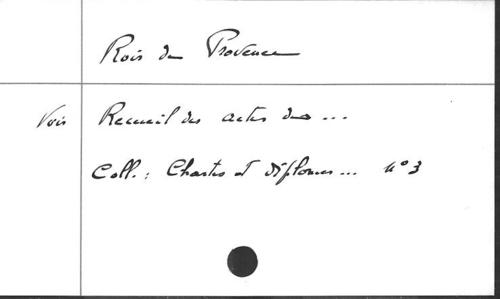 Rois de Provence
Voir Recueil des actes des ...
Coll. : Chartes et diplomes ... n° 3